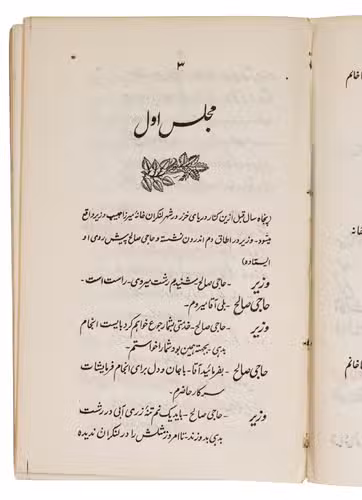 ۳
مجلس اول
(پنجاه سال قبل ازین کنار دریای خزر در شهر لنکران خانهٔ میرزا حبیب وزیر واقع
میشود - وزیر در اطاق دم اندرون نشسته و حاجی صالح پیش روی او
ایستاده)
وزیر - حاجی صالح شنیدم رشت میروی - راست است -
حاجی صالح - بلی آقا میروم -
وزیر - حاجی صالح - خدمتی بشما رجوع خواهم کرد بایست انجام
بدهی بجهته همین بود شما را خواستم -
حاجی صالح - بفرمائید آقا - با جان و دل برای انجام فرمایشات
سرکار حاضرم -
وزیر - حاجی صالح - باید یک نیم تنهٔ زری آبی در رشت
بدهی بدوزند - تا امروز مثلش را در لنکران ندیده
خانم
خانه
خانم